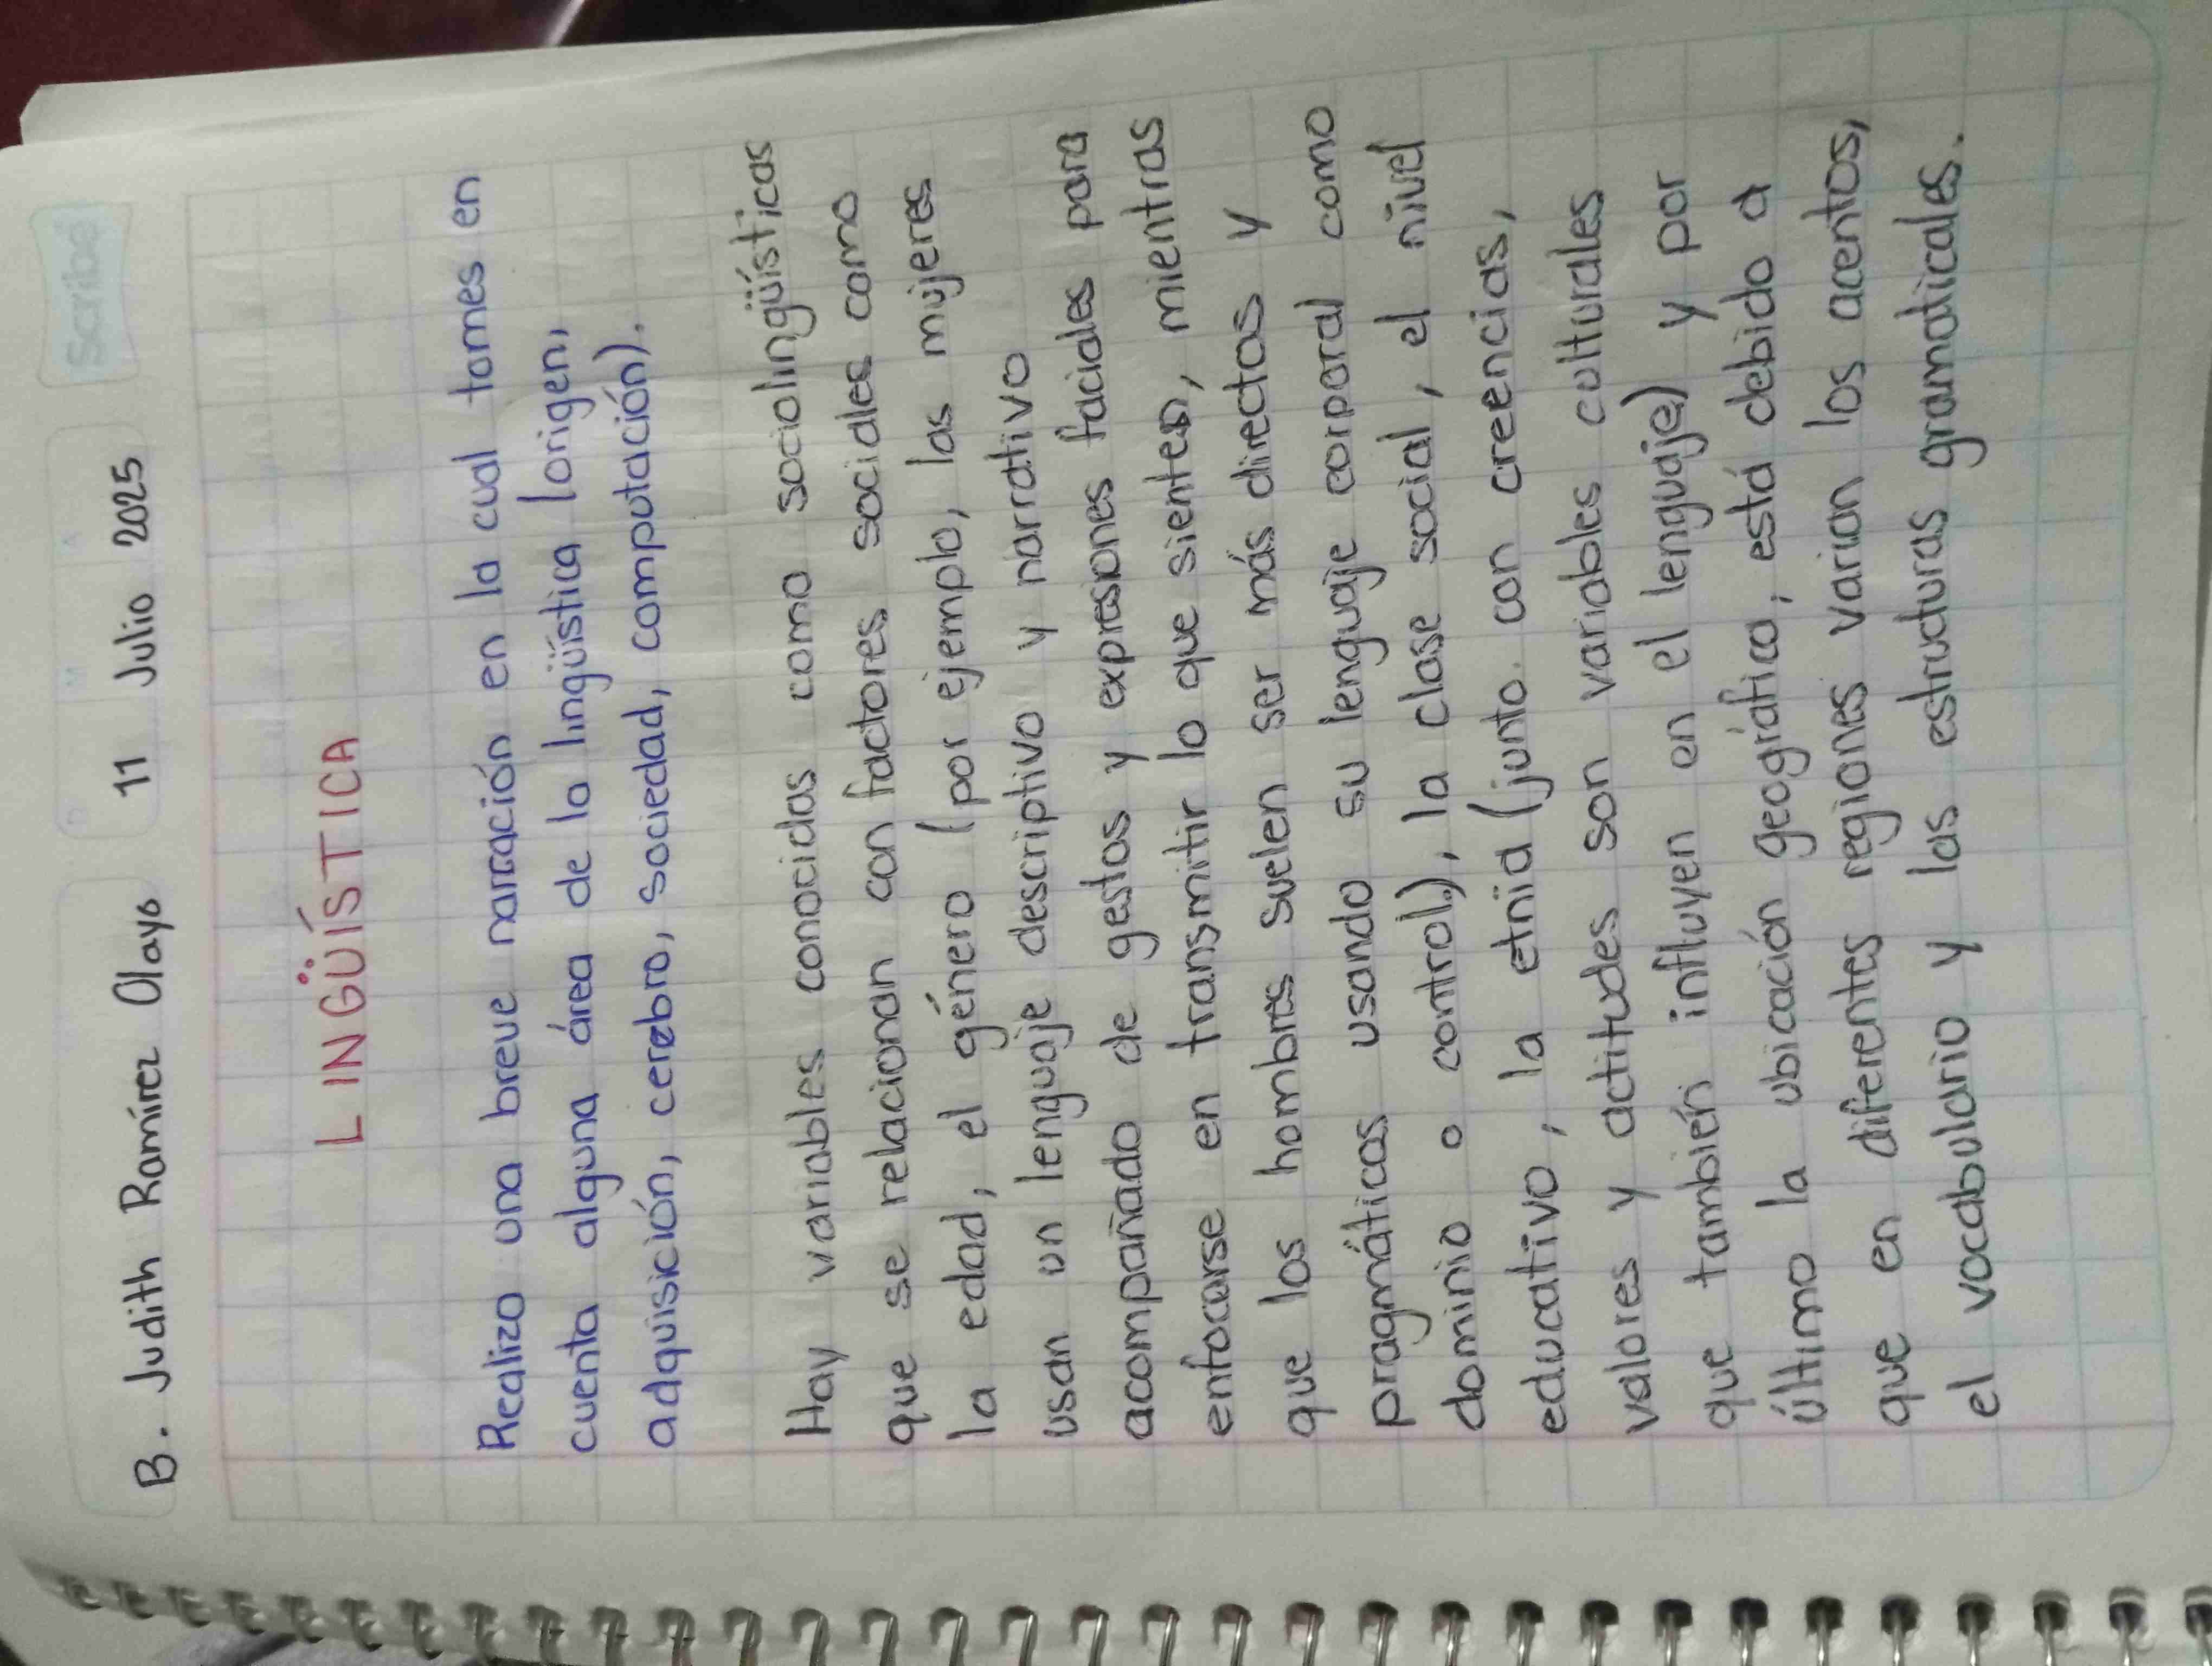 Scribe
B. Judith Ramírez Olayo 11 Julio 2025
LINGÜÍSTICA
Realizo una breve narración en la cual tomes en
cuenta alguna área de la lingüística (origen,
adquisición, cerebro, sociedad, computación).
Hay variables conocidas como sociolingüísticas
que se relacionan con factores sociales como
la edad, el género (por ejemplo, las mujeres
usan un lenguaje descriptivo y narrativo
acompañado de gestos y expresiones faciales para
enfocarse en transmitir lo que sienten, mientras
que los hombres suelen ser más directos y
pragmáticos usando su lenguaje corporal como
dominio o control), la clase social, el nivel
educativo, la etnia (junto con creencias,
valores y actitudes son variables culturales
que también influyen en el lenguaje) y por
último la ubicación geográfica, está debido a
que en diferentes regiones varian los acentos,
el vocabulario y las estructuras gramaticales.